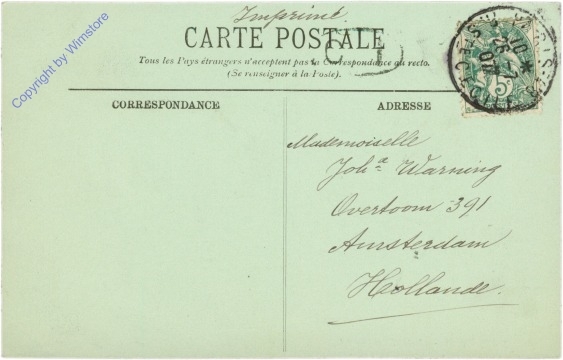 Imprimé.
CARTE POSTALE
Tous les Pays étrangers n'acceptent pas la Correspondance au recto.
(Se renseigner à la Poste).
CORRESPONDANCE
ADRESSE
Mademoiselle
Joha Warning
Overtoom 391
Amsterdam
Hollande.
5
Copyright by Wimstore